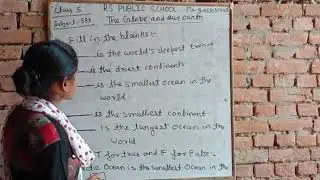 Class 5 RS PUBLIC SCHOOL
Subject - SST The Globe and our earth
Fill in the blanks :-
is the world's deepest
is the driest continents
is the smallest ocean in the
world
is the smallest continent
is the largest ocean in the
world
T for true and F for False:-
Ocean is the smallest Ocean in the